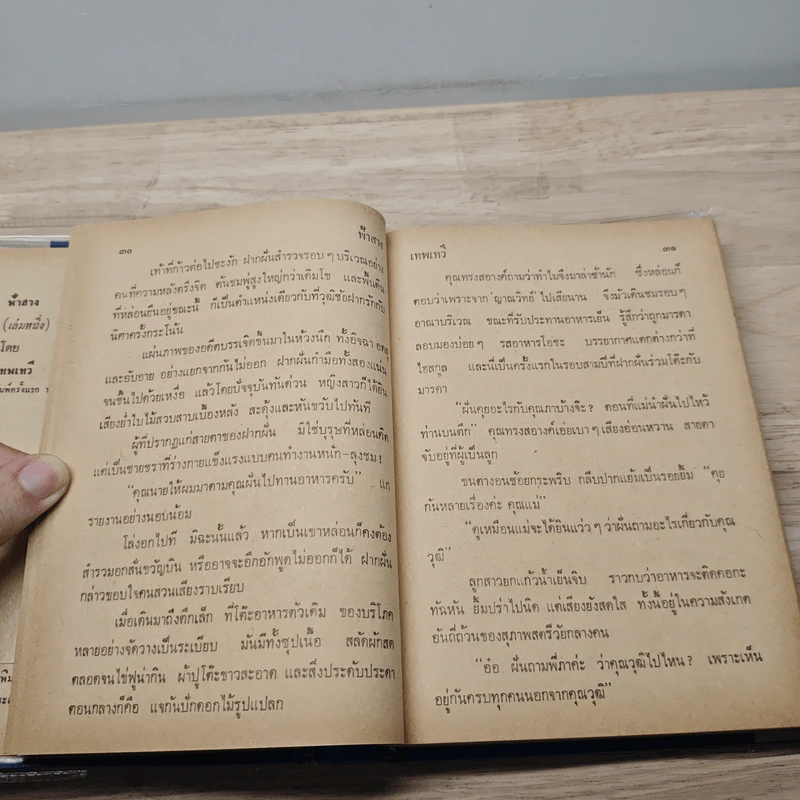 ฟ้าสาง
(เล่มหนึ่ง)
โดย
เทพเทวี
พิมพ์ครั้งแรก
๓๐
ฟ้าสาง
เท้าที่ก้าวต่อไปชะงัก ฝากผั่นสำรวจรอบๆ บริเวณอย่าง
คนที่ความหลังตรึงจิต ต้นชมพู่สูงใหญ่กว่าเดิมโข และพื้นดิน
ที่หล่อนยืนอยู่ขณะนี้ ก็เป็นตำแหน่งเดียวกับที่วุฒิชัยฝากรักกับ
นิศาครั้งกระโน้น
แผ่นภาพของอดีตบรรเจิดขึ้นมาในห้วงนึก ทั้งอิจฉา อดสู
และอับอาย อย่างแยกจากกันไม่ออก ฝากผั่นกำมือทั้งสองแน่น
จนชื้นไปด้วยเหงื่อ แล้วโดยปัจจุบันทันด่วน หญิงสาวก็ได้ยิน
เสียงย่ำใบไม้สวบสาบเบื้องหลัง สะดุ้งและหันขวับไปทันที
ผู้ที่ปรากฏแก่สายตาของฝากผั่น มิใช่บุรุษที่หล่อนคิด
แต่เป็นชายชราที่ร่างกายแข็งแรงแบบคนทำงานหนัก-ลุงชม!
“คุณนายให้ผมมาตามคุณผั่นไปทานอาหารครับ” แก
รายงานอย่างนอบน้อม
โล่งอกไปที มิฉะนั้นแล้ว หากเป็นเขาหล่อนก็คงต้อง
สำรวมอกสั่นขวัญบิน หรืออาจจะอึกอักพูดไม่ออกก็ได้ ฝากผั่น
กล่าวขอบใจคนสวนเสียงราบเรียบ
เมื่อเดินมาถึงตึกเล็ก ที่โต๊ะอาหารตัวเดิม ของบริโภค
หลายอย่างจัดวางเป็นระเบียบ มันมีทั้งซุปเนื้อ สลัดผักสด
ตลอดจนไข่ฟูน่ากิน ผ้าปูโต๊ะขาวสะอาด และสิ่งประดับประดา
ตอนกลางก็คือ แจกันปักดอกไม้รูปแปลก
เทพเทวี
๓๑
คุณทรงสอางค์ถามว่าทำไมจึงมาล่าช้านัก ซึ่งหล่อนก็
ตอบว่าเพราะจาก ‘ญาณวิทย์’ ไปเสียนาน จึงมัวเดินชมรอบๆ
อาณาบริเวณ ขณะที่รับประทานอาหารเย็น รู้สึกว่าถูกมารดา
ลอบมองบ่อยๆ รสอาหารโอชะ บรรยากาศแตกต่างกว่าที่
ไฮสกูล และนี่เป็นครั้งแรกในรอบสามปีที่ฝากผั่นร่วมโต๊ะกับ
มารดา
“ผั่นคุยอะไรกับคุณภาบ้างจ๊ะ? ตอนที่แม่นำผั่นไปไหว้
ท่านบนตึก” คุณทรงสอางค์เอ่ยเบาๆ เสียงอ่อนหวาน สายตา
จับอยู่ที่ผู้เป็นลูก
ขนตางอนช้อยกระพริบ กลีบปากแย้มเป็นรอยยิ้ม “คุย
กันหลายเรื่องค่ะ คุณแม่”
“ดูเหมือนแม่จะได้ยินแว่วๆ ว่าผั่นถามอะไรเกี่ยวกับคุณ
วุฒิ”
ลูกสาวยกแก้วน้ำเย็นจิบ ราวกบว่าอาหารจะติดคอกะ
ทันหัน ยิ้มปร่าไปนิด แต่เสียงยังสดใส ทั้งนี้อยู่ในความสังเกต
อันถี่ถ้วนของสุภาพสตรีวัยกลางคน
“อ๋อ ผั่นถามพี่ภาค่ะ ว่าคุณวุฒิไปไหน? เพราะเห็น
อยู่กันครบทุกคนนอกจากคุณวุฒิ”